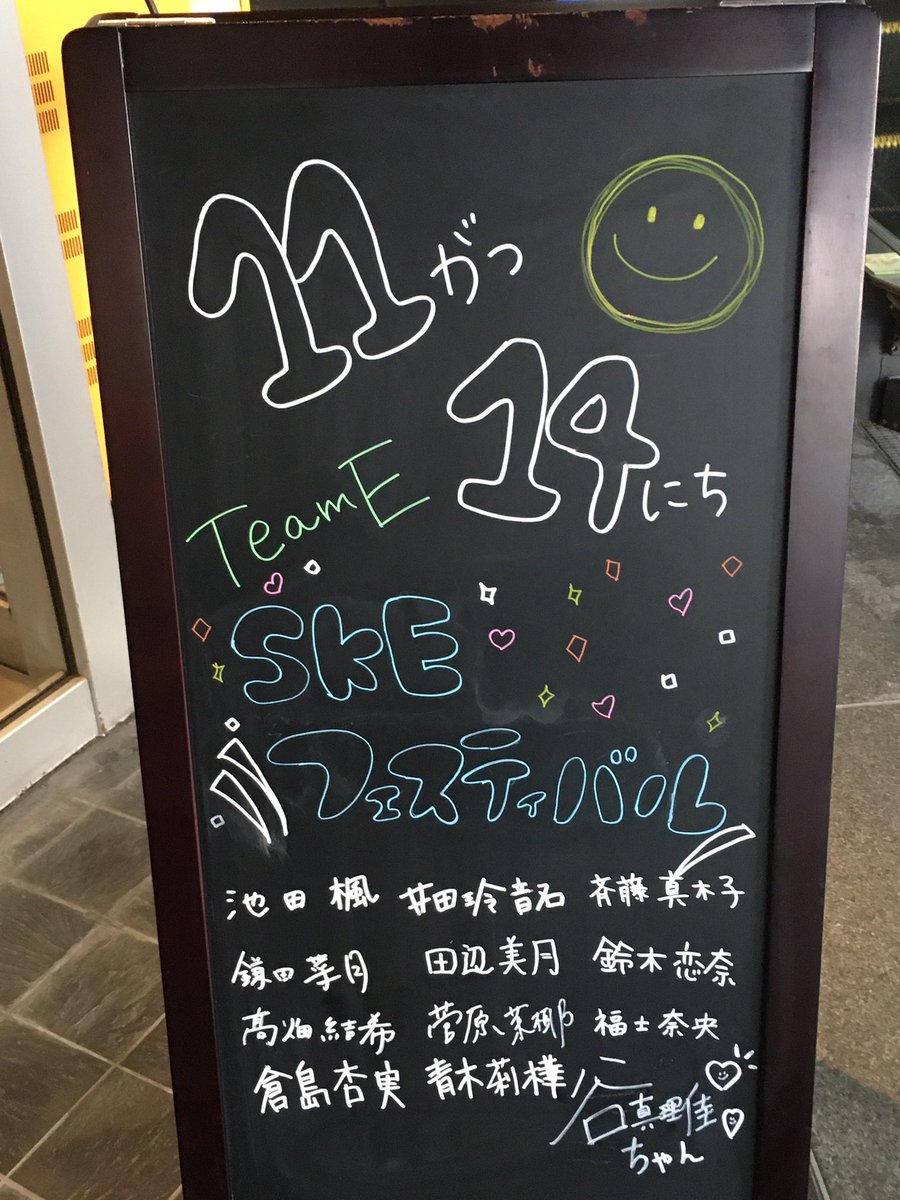 11がつ
14にち
TeamE
SkE
フェスティバル
池田 楓 井田玲音名 斉藤真木子
鎌田菜月 田辺美月 鈴木恋奈
髙畑結希 菅原茉椰 福士奈央
倉島杏実 青木莉樺 谷真理佳
ちゃん